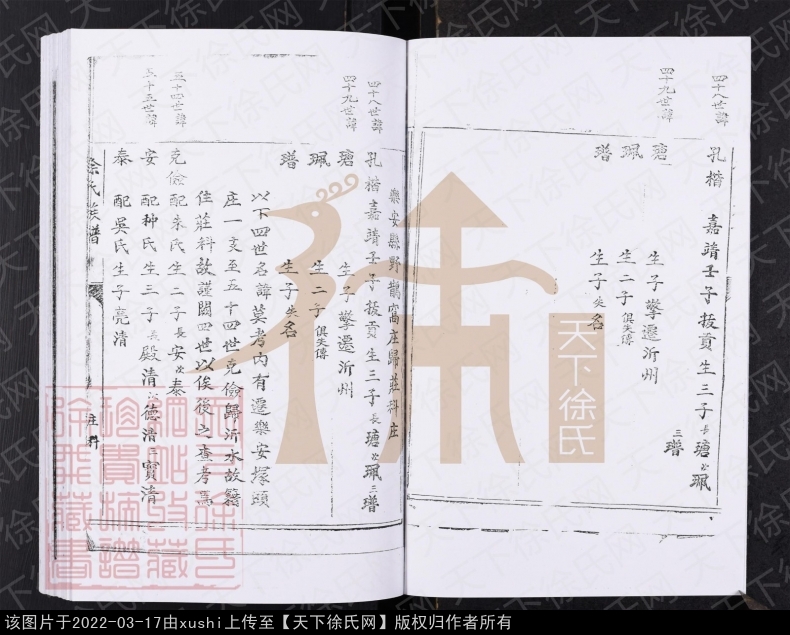 四十八世諱
孔楷 嘉靖壬子拔貢生三子長瑭次珮三璔
四十九世諱
瑭 生子擎遷沂州
珮 生二子俱失傳
璔 生子失名
樂安縣野鵲窩庄歸莊科庄
四十八世諱
孔楷嘉靖壬子拔貢生三子長瑭次珮三璔
四十九世諱
瑭 生子擎遷沂州
珮 生二子俱失傳
璔 生子失名
以下四世名諱莫考內有遷樂安塚頭
庄一支至五十四世克儉歸沂水故籍
住莊科故謹闕四世以俟後之查考焉
五十四世諱
克儉配朱氏生二子長安次泰
五十五世諱
安 配种氏生三子長殿清次德清三寶清
泰 配吳氏生子亮清
徐氏族譜
庄科
天下徐氏
天下徐氏网
该图片于2022-03-17由xushi上传至【天下徐氏网】版权归作者所有